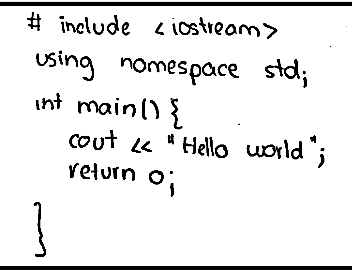 # include <iostream>
using nomespace std;
int main() {
cout << "Hello world";
return 0;
}